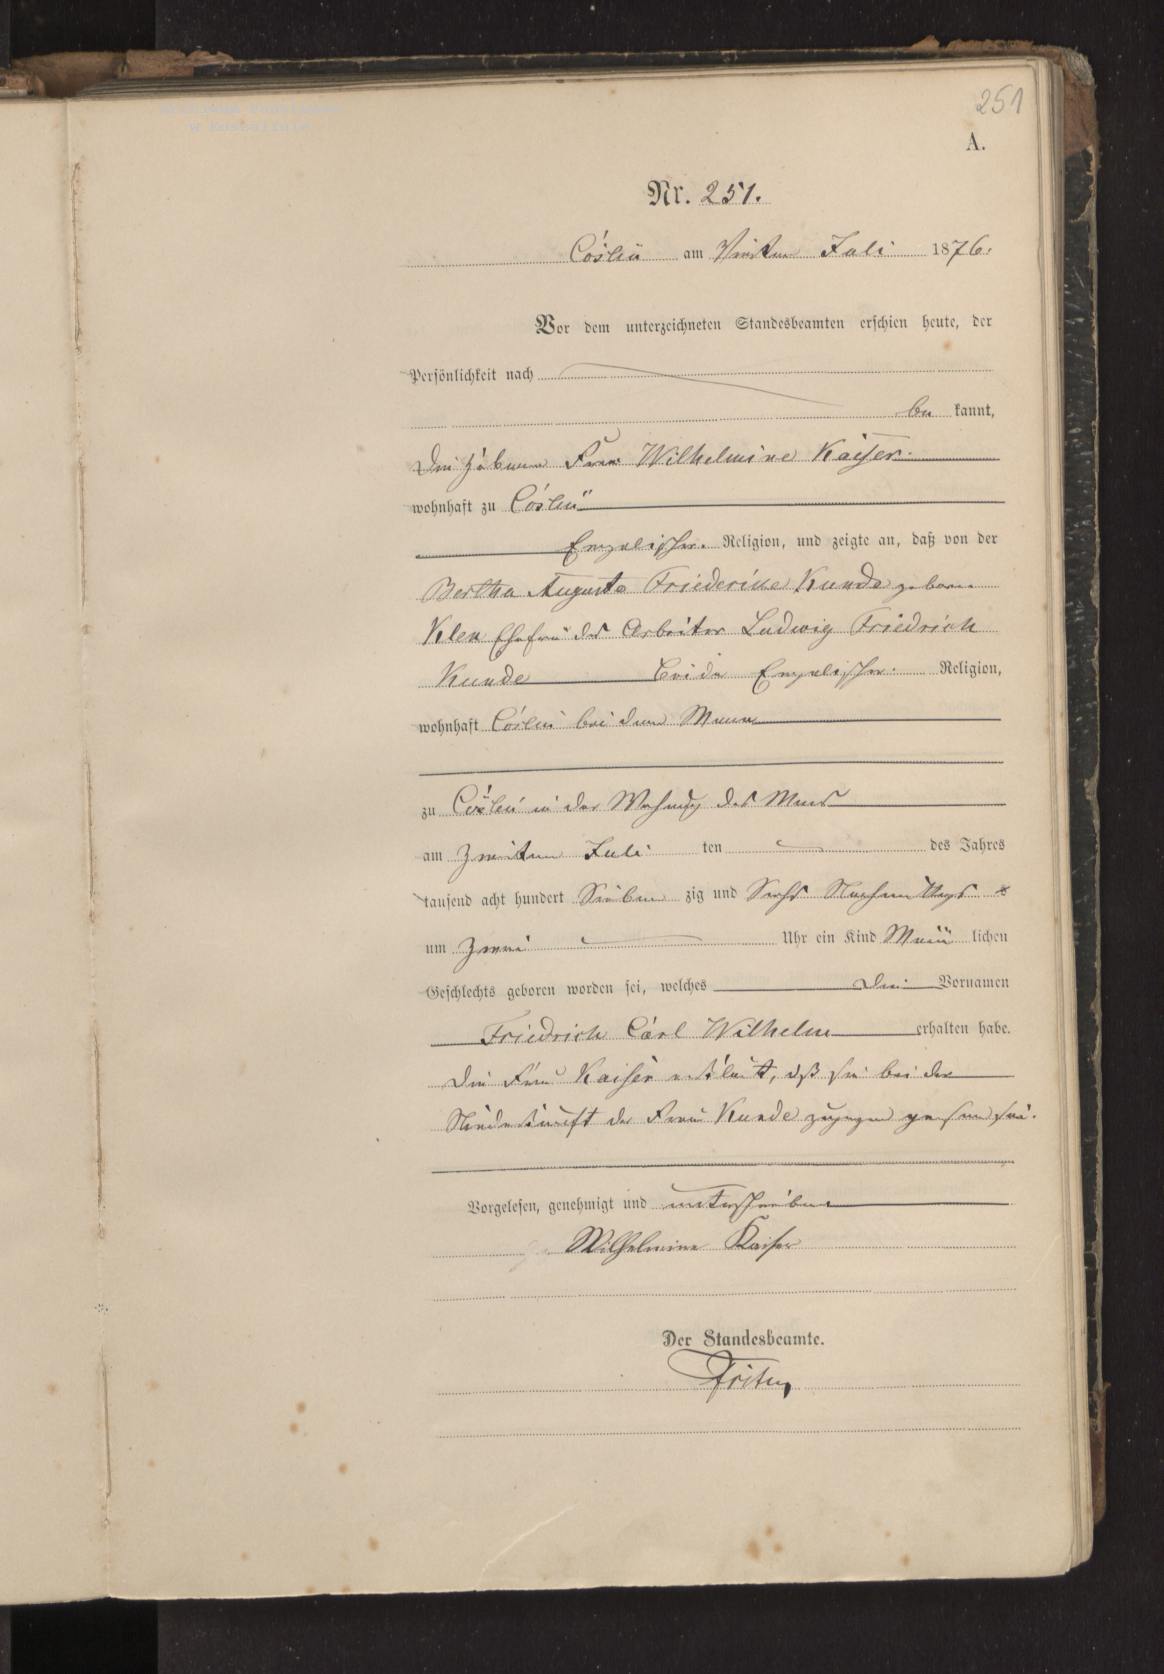 Archiwum Państwowe
w Koszalinie
251
A.
Nr. 251.
Cöslin am Vierten Juli 1876.
Vor dem unterzeichneten Standesbeamten erschien heute, der
Persönlichkeit nach
be kannt,
die Hebamme Frau Wilhelmine Kaiser
wohnhaft zu Cöslin
Evangelischer Religion, und zeigte an, daß von der
Bertha Auguste Friederike Kunde geborne
Ehefrau des Arbeiter Ludwig Friedrich
Kunde beide Evangelischer Religion,
wohnhaft Cöslin bei dem Mann
zu Cöslin in der Wohnung des Manns
am Zweiten Juli ten des Jahres
tausend acht hundert Sieben zig und Sechs Nachmittags
um Zwei Uhr ein Kind Männ lichen
Geschlechts geboren worden sei, welches die Vornamen
Friedrich Carl Wilhelm erhalten habe.
Die Frau Kaiser erklärt, daß sie bei der
Niederkunft der Frau Kunde zugegen gewesen sei.
Vorgelesen, genehmigt und unterschrieben
Wilhelmine Kaiser
Der Standesbeamte.